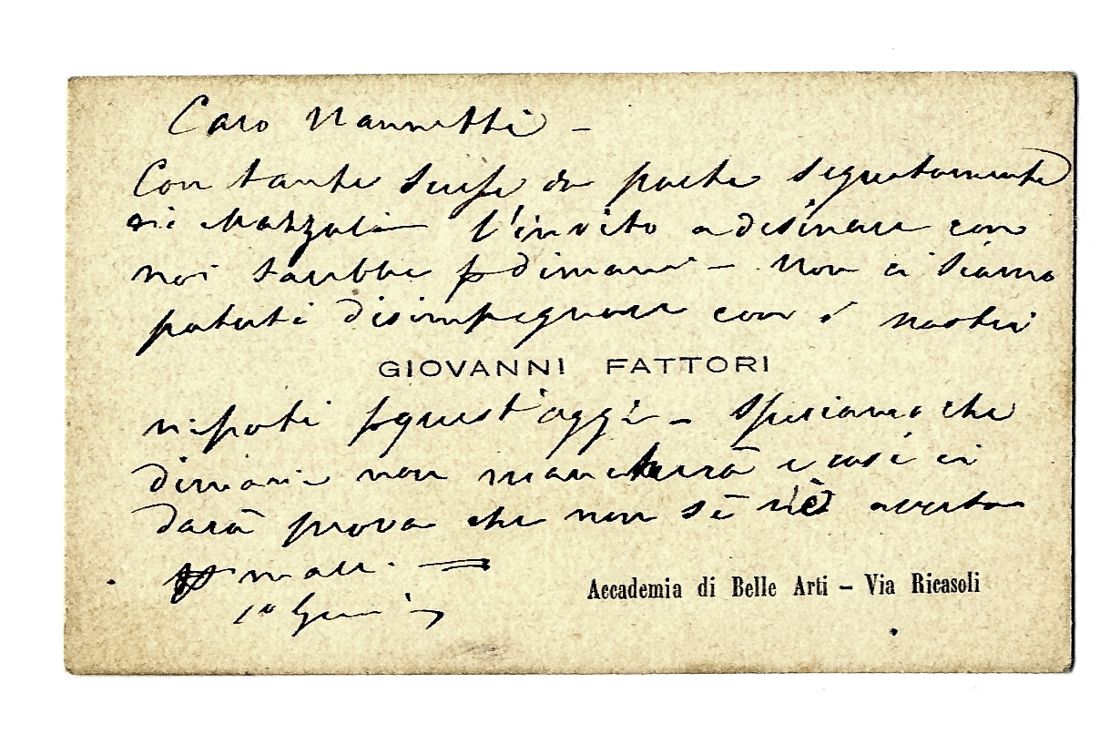 Caro Nannetti –
Con tante scuse da parte segnatamente
di l'invito a desinare con
noi sarebbe p dimani – Non ci siamo
potuti disimpegnare con i nostri
GIOVANNI FATTORI
nipoti p quest'oggi – Speriamo che
dimani non mancherà e così ci
darà prova che non se n'è averta
p male.
1º
Accademia di Belle Arti – Via Ricasoli